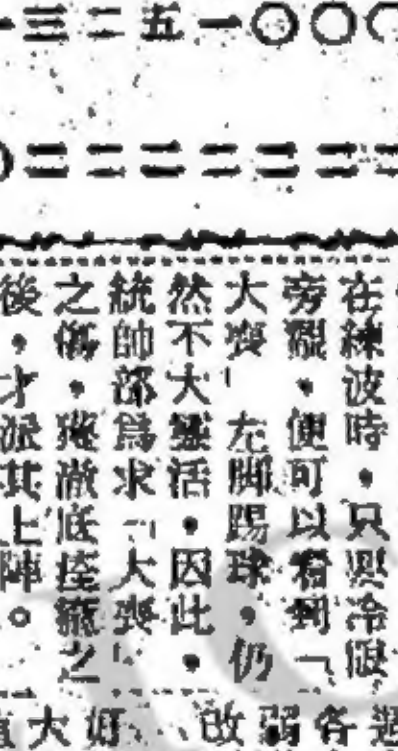 一三二五一〇〇〇
二二二二二三二
在練波時，只要冷眼
旁觀，便可以看到「
大喪」左脚踢球，仍
然不大靈活，因此，
統帥部爲求「大喪」
之傷，徹底痊癒之
後，才派其上陣。
各
弱
改
好
大